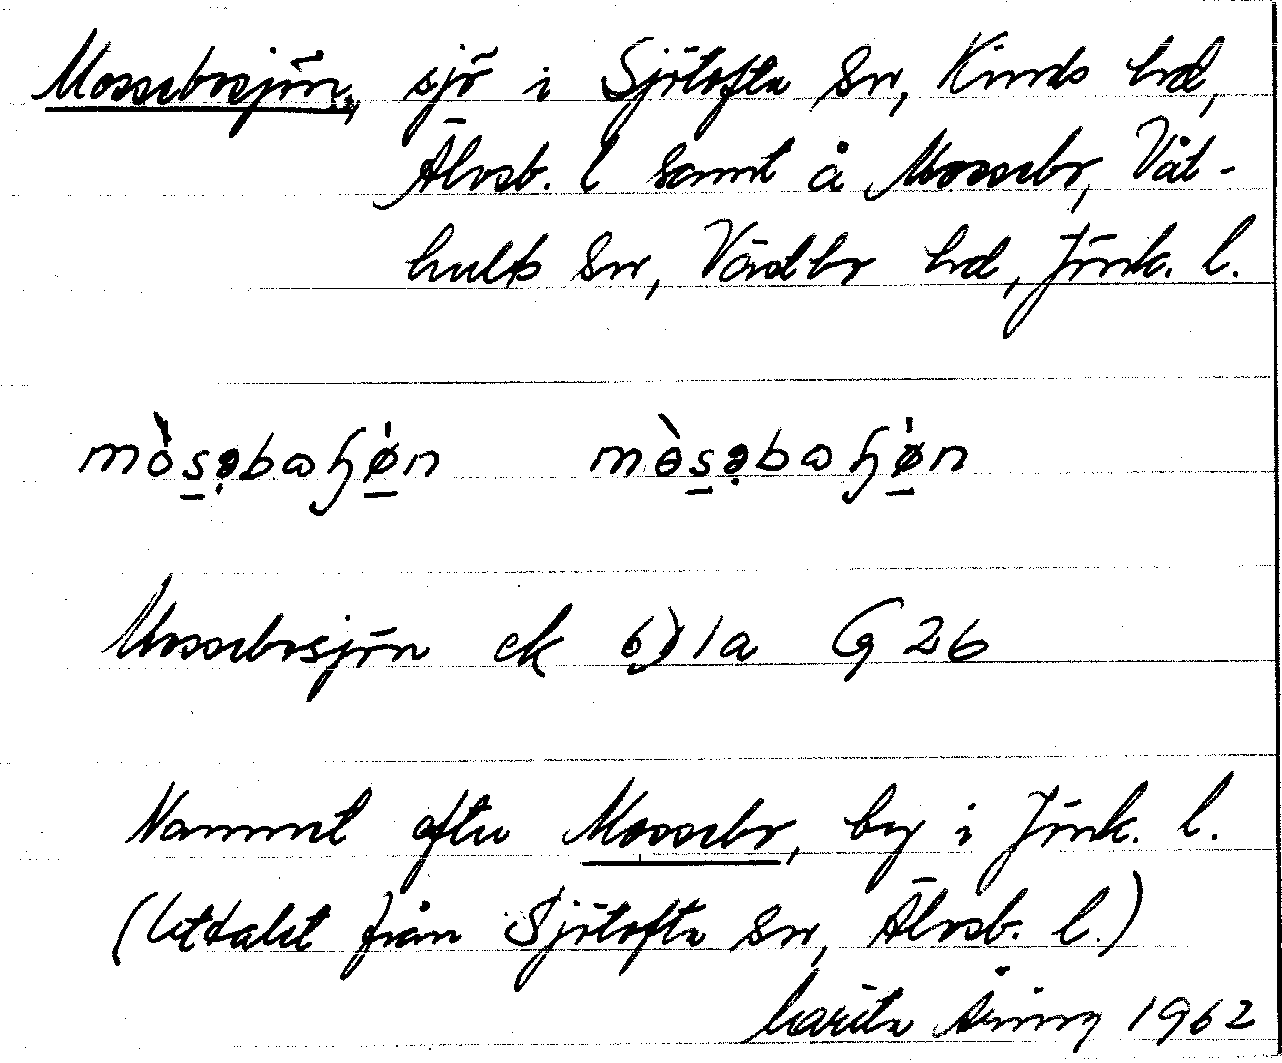 Mossebosjön, sjö i Sjötofta sn, Kinds hd,
Älvsb. l samt å Mossebo, Våt-
hults sn, Västbo hd, Jönk. l.
mòsəbaɧø̀n mɵ̀səbaɧø̀n
Mossebosjön ek 6)1a G 26
Namnet efter Mossebo, by i Jönk. l.
(Uttalet från Sjötofta sn, Älvsb. l.)
1962